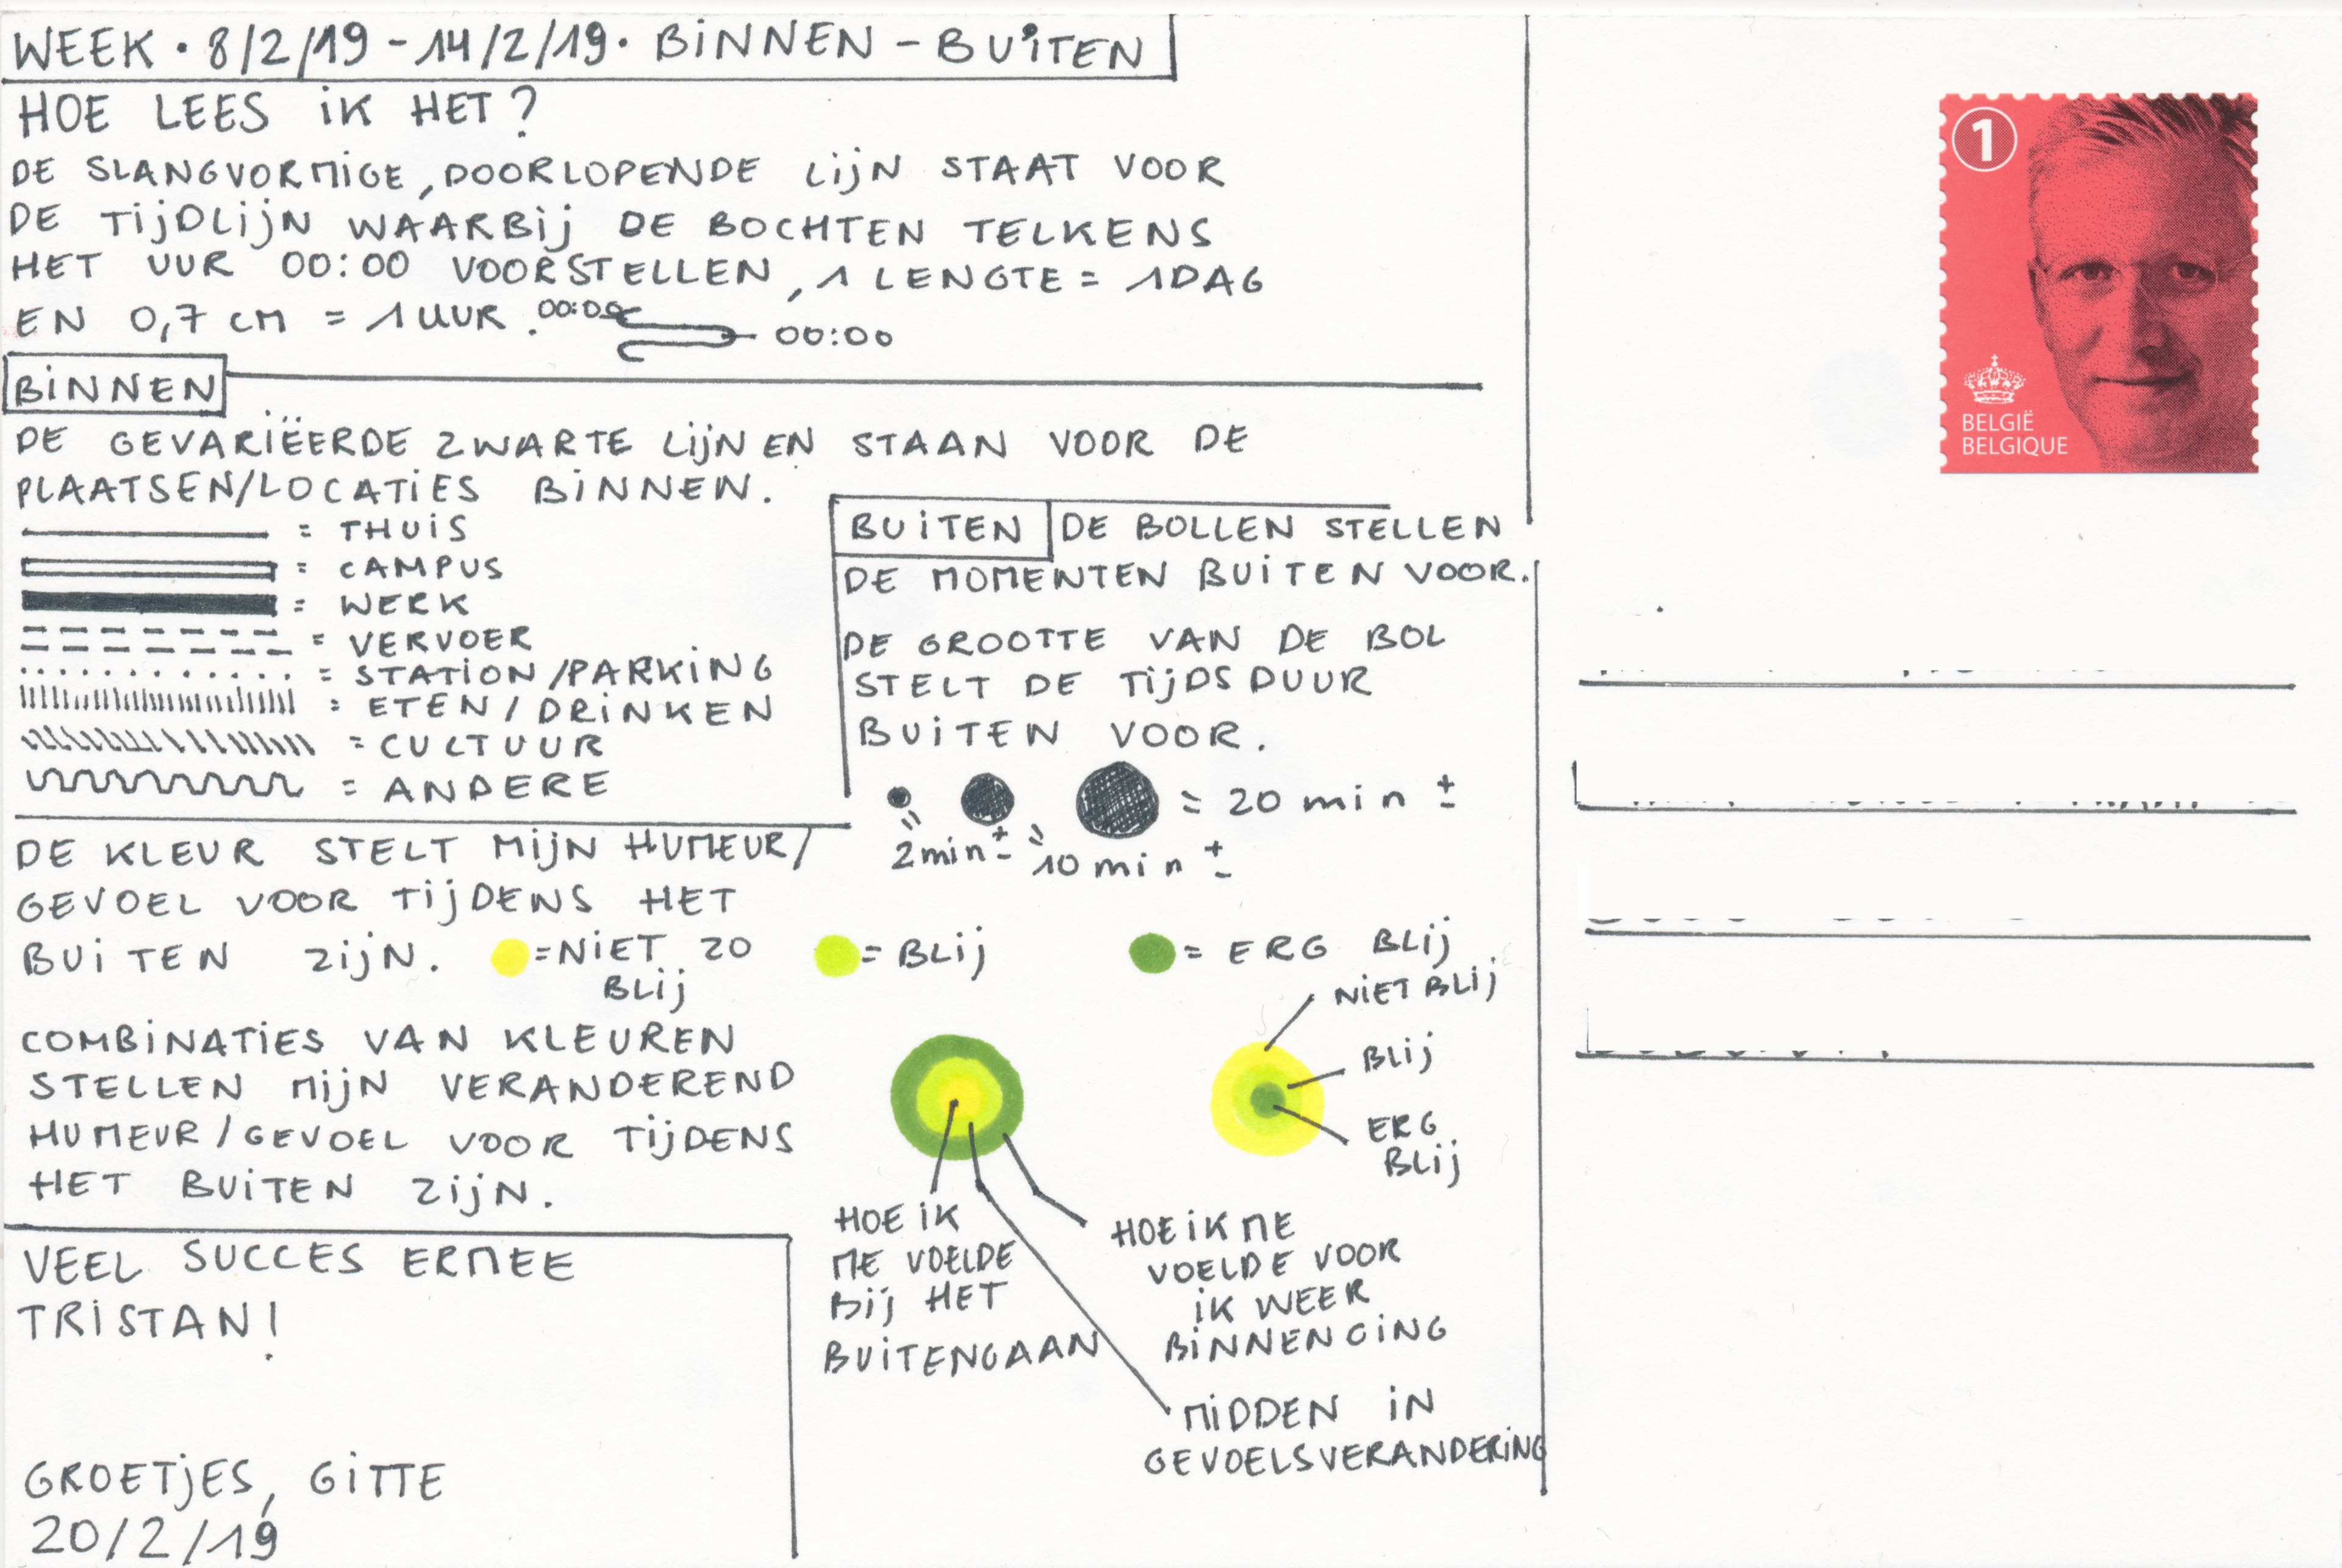 WEEK • 8/2/19 - 14/2/19 • BINNEN - BUITEN
HOE LEES IK HET?
DE SLANGVORMIGE, DOORLOPENDE LIJN STAAT VOOR
DE TIJDLIJN WAARBIJ DE BOCHTEN TELKENS
HET UUR 00:00 VOORSTELLEN, 1 LENGTE = 1 DAG
EN 0,7 CM = 1 UUR. 00:00
00:00
BINNEN
DE GEVARIËERDE ZWARTE LIJNEN STAAN VOOR DE
PLAATSEN/LOCATIES BINNEN.
= THUIS
= CAMPUS
= WERK
= VERVOER
= STATION/PARKING
= ETEN/DRINKEN
= CULTUUR
= ANDERE
BUITEN DE BOLLEN STELLEN
DE MOMENTEN BUITEN VOOR.
DE GROOTTE VAN DE BOL
STELT DE TIJDSDUUR
BUITEN VOOR.
= 20 min ±
= 2min ± = 10 min ±
DE KLEUR STELT MIJN HUMEUR/
GEVOEL VOOR TIJDENS HET
BUITEN ZIJN. = NIET ZO
BLIJ
= BLIJ
= ERG BLIJ
COMBINATIES VAN KLEUREN
STELLEN MIJN VERANDEREND
HUMEUR/GEVOEL VOOR TIJDENS
HET BUITEN ZIJN.
NIET BLIJ
BLIJ
ERG
BLIJ
HOE IK
ME VOELDE
BIJ HET
BUITENGAAN
HOE IK ME
VOELDE VOOR
IK WEER
BINNENGING
MIDDEN IN
GEVOELSVERANDERING
VEEL SUCCES ERMEE
TRISTAN!
GROETJES, GITTE
20/2/19
1
BELGIË
BELGIQUE